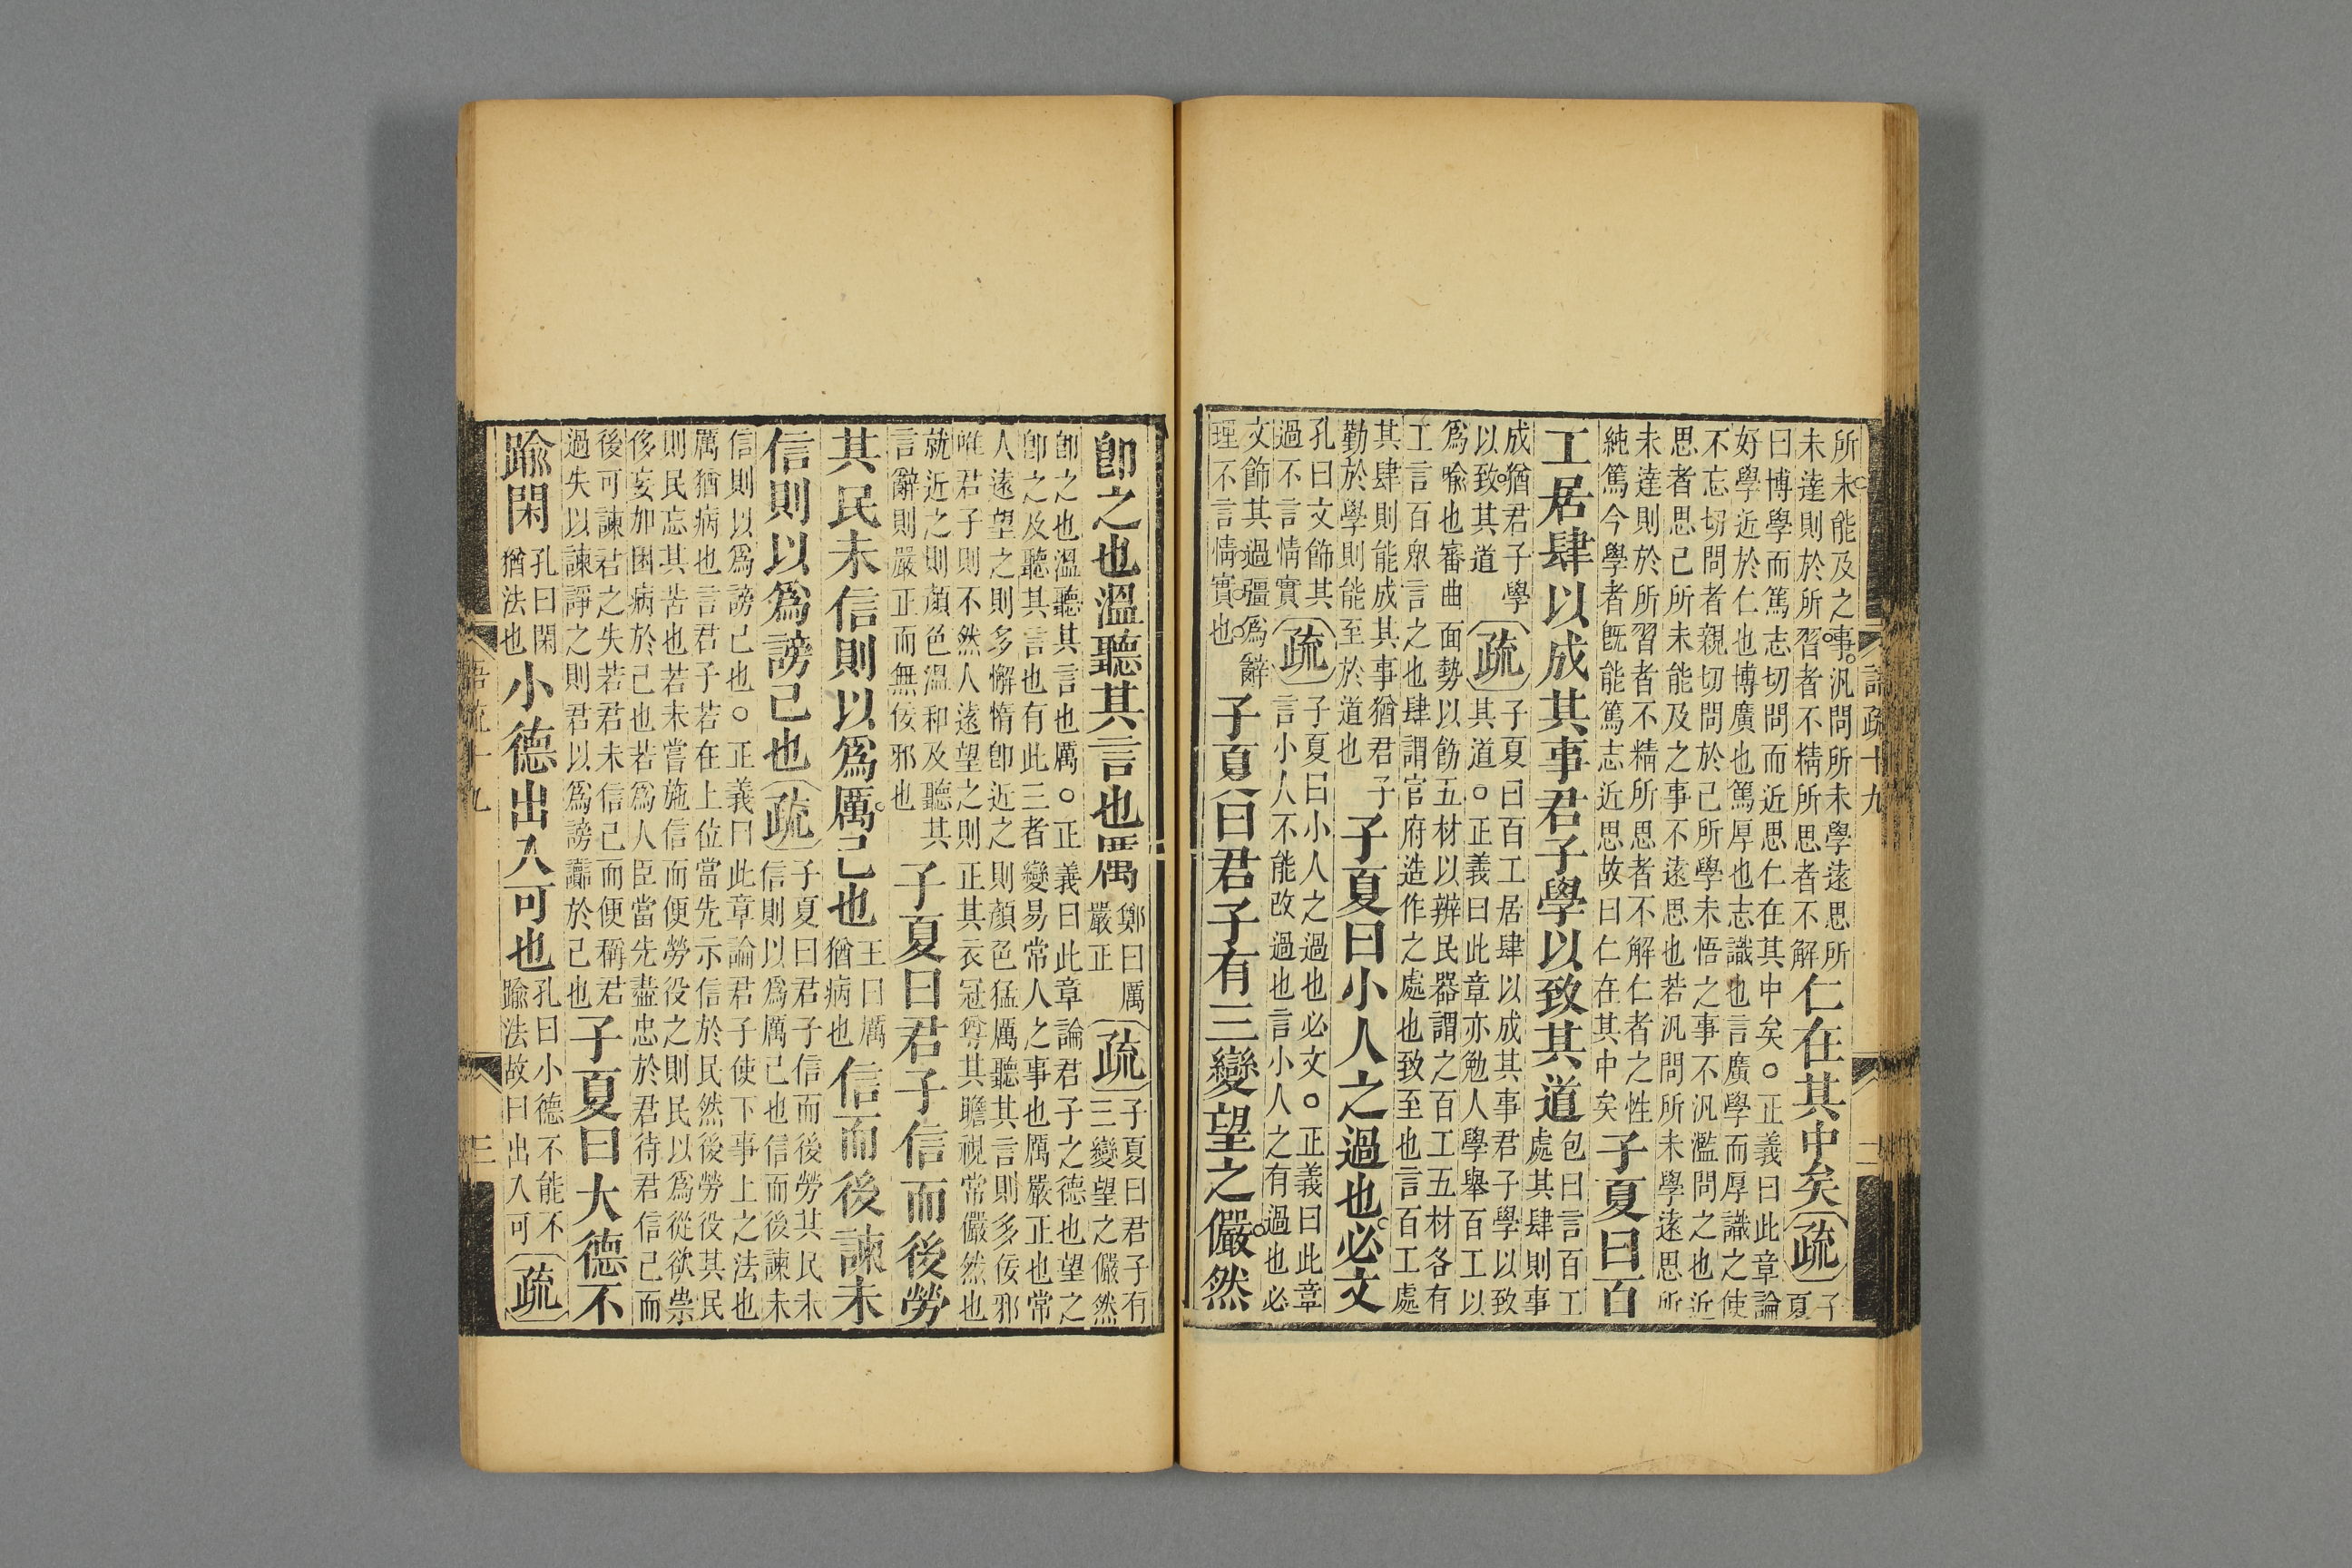 所未能及之事汎問所未學遠思所
未達則於所習者不精所思者不解
仁在其中矣
疏
子
夏
曰博學而篤志切問而近思仁在其中矣○正義曰此章論
好學近於仁也博廣也篤厚也志識也言廣學而厚識之使
不忘切問者親切問於己所學未悟之事不汎濫問之也近
思者思己所未能及之事不遠思也若汎問所未學遠思所
未達則於所習者不精所思者不解仁者之性
純篤今學者既能篤志近思故曰仁在其中矣
子夏曰百
工居肆以成其事君子學以致其道
包曰言百工
處其肆則事
成猶君子學
以致其道
疏
子夏曰百工居肆以成其事君子學以致
其道○正義曰此章亦勉人學舉百工以
爲喻也審曲面勢以飭五材以辨民器謂之百工五材各有
工言百衆言之也肆謂官府造作之處也致至也言百工處
其肆則能成其事猶君子
勤於學則能至於道也
子夏曰小人之過也必文
孔曰文飾其
過不言情實
疏
子夏曰小人之過也必文○正義曰此章
言小人不能改過也言小人之有過也必
文飾其過彊爲辭
理不言情實也
子夏曰君子有三變望之儼然
卽之也溫聽其言也厲
鄭曰厲
嚴正
疏
子夏曰君子有
三變望之儼然
卽之也溫聽其言也厲○正義曰此章論君子之德也望之
卽之及聽其言也有此三者變易常人之事也厲嚴正也常
人遠望之則多懈惰卽近之則顏色猛厲聽其言則多佞邪
唯君子則不然人遠望之則正其衣冠尊其瞻視常儼然也
就近之則顏色溫和及聽其
言辭則嚴正而無佞邪也
子夏曰君子信而後勞
其民未信則以爲厲己也
王曰厲
猶病也
信而後諫未
信則以爲謗己也
疏
子夏曰君子信而後勞其民未
信則以爲厲己也信而後諫未
信則以爲謗己也○正義曰此章論君子使下事上之法也
厲猶病也言君子若在上位當先示信於民然後勞役其民
則民忘其苦也若未嘗施信而便勞役之則民以爲從欲崇
侈妄加困病於己也若爲人臣當先盡忠於君待君信己而
後可諫君之失若君未信己而便稱君
過失以諫諍之則君以爲謗讟於己也
子夏曰大德不
踰閑
孔曰閑
猶法也
小德出入可也
孔曰小德不能不
踰法故曰出入可
疏
語疏十九
二
語疏十九
三